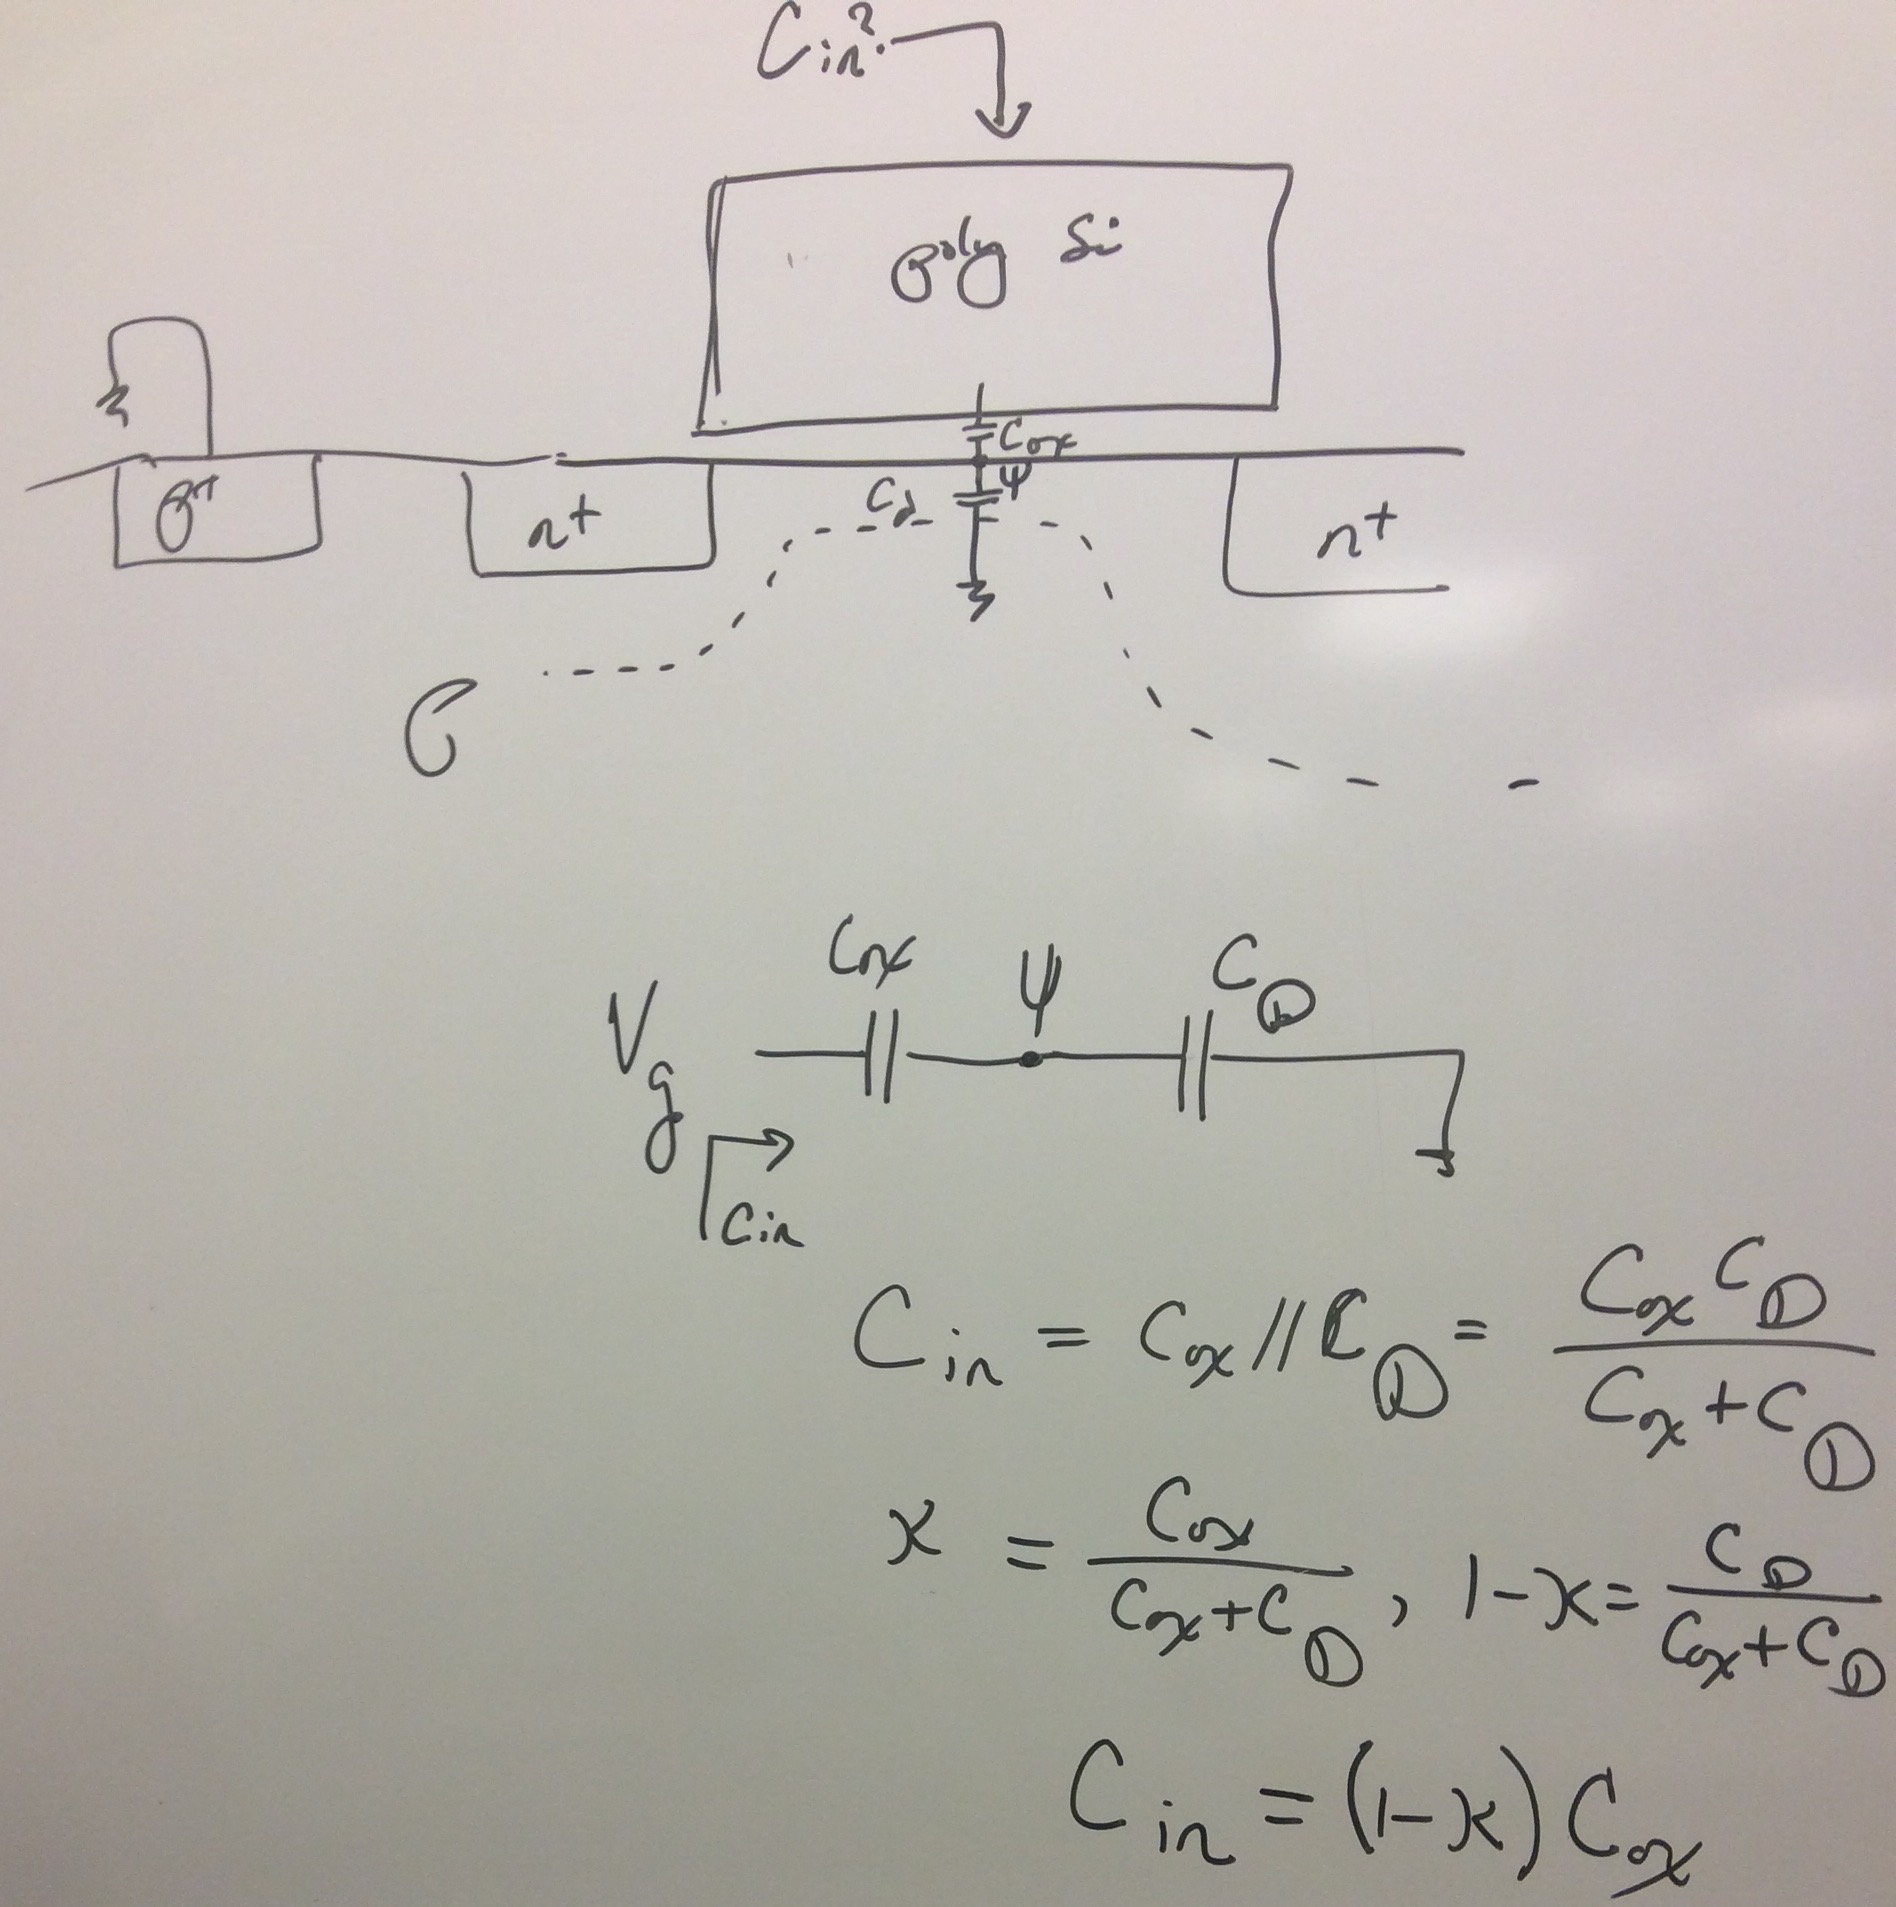 Cin?
Poly Si
Cox
ψ
Cd
P+
n+
n+
P
Cox
ψ
CD
Vg
Cin
Cin = Cox // CD = Cox CD / Cox + CD
κ = Cox / Cox + CD , 1-κ = CD / Cox + CD
Cin = (1-κ) Cox